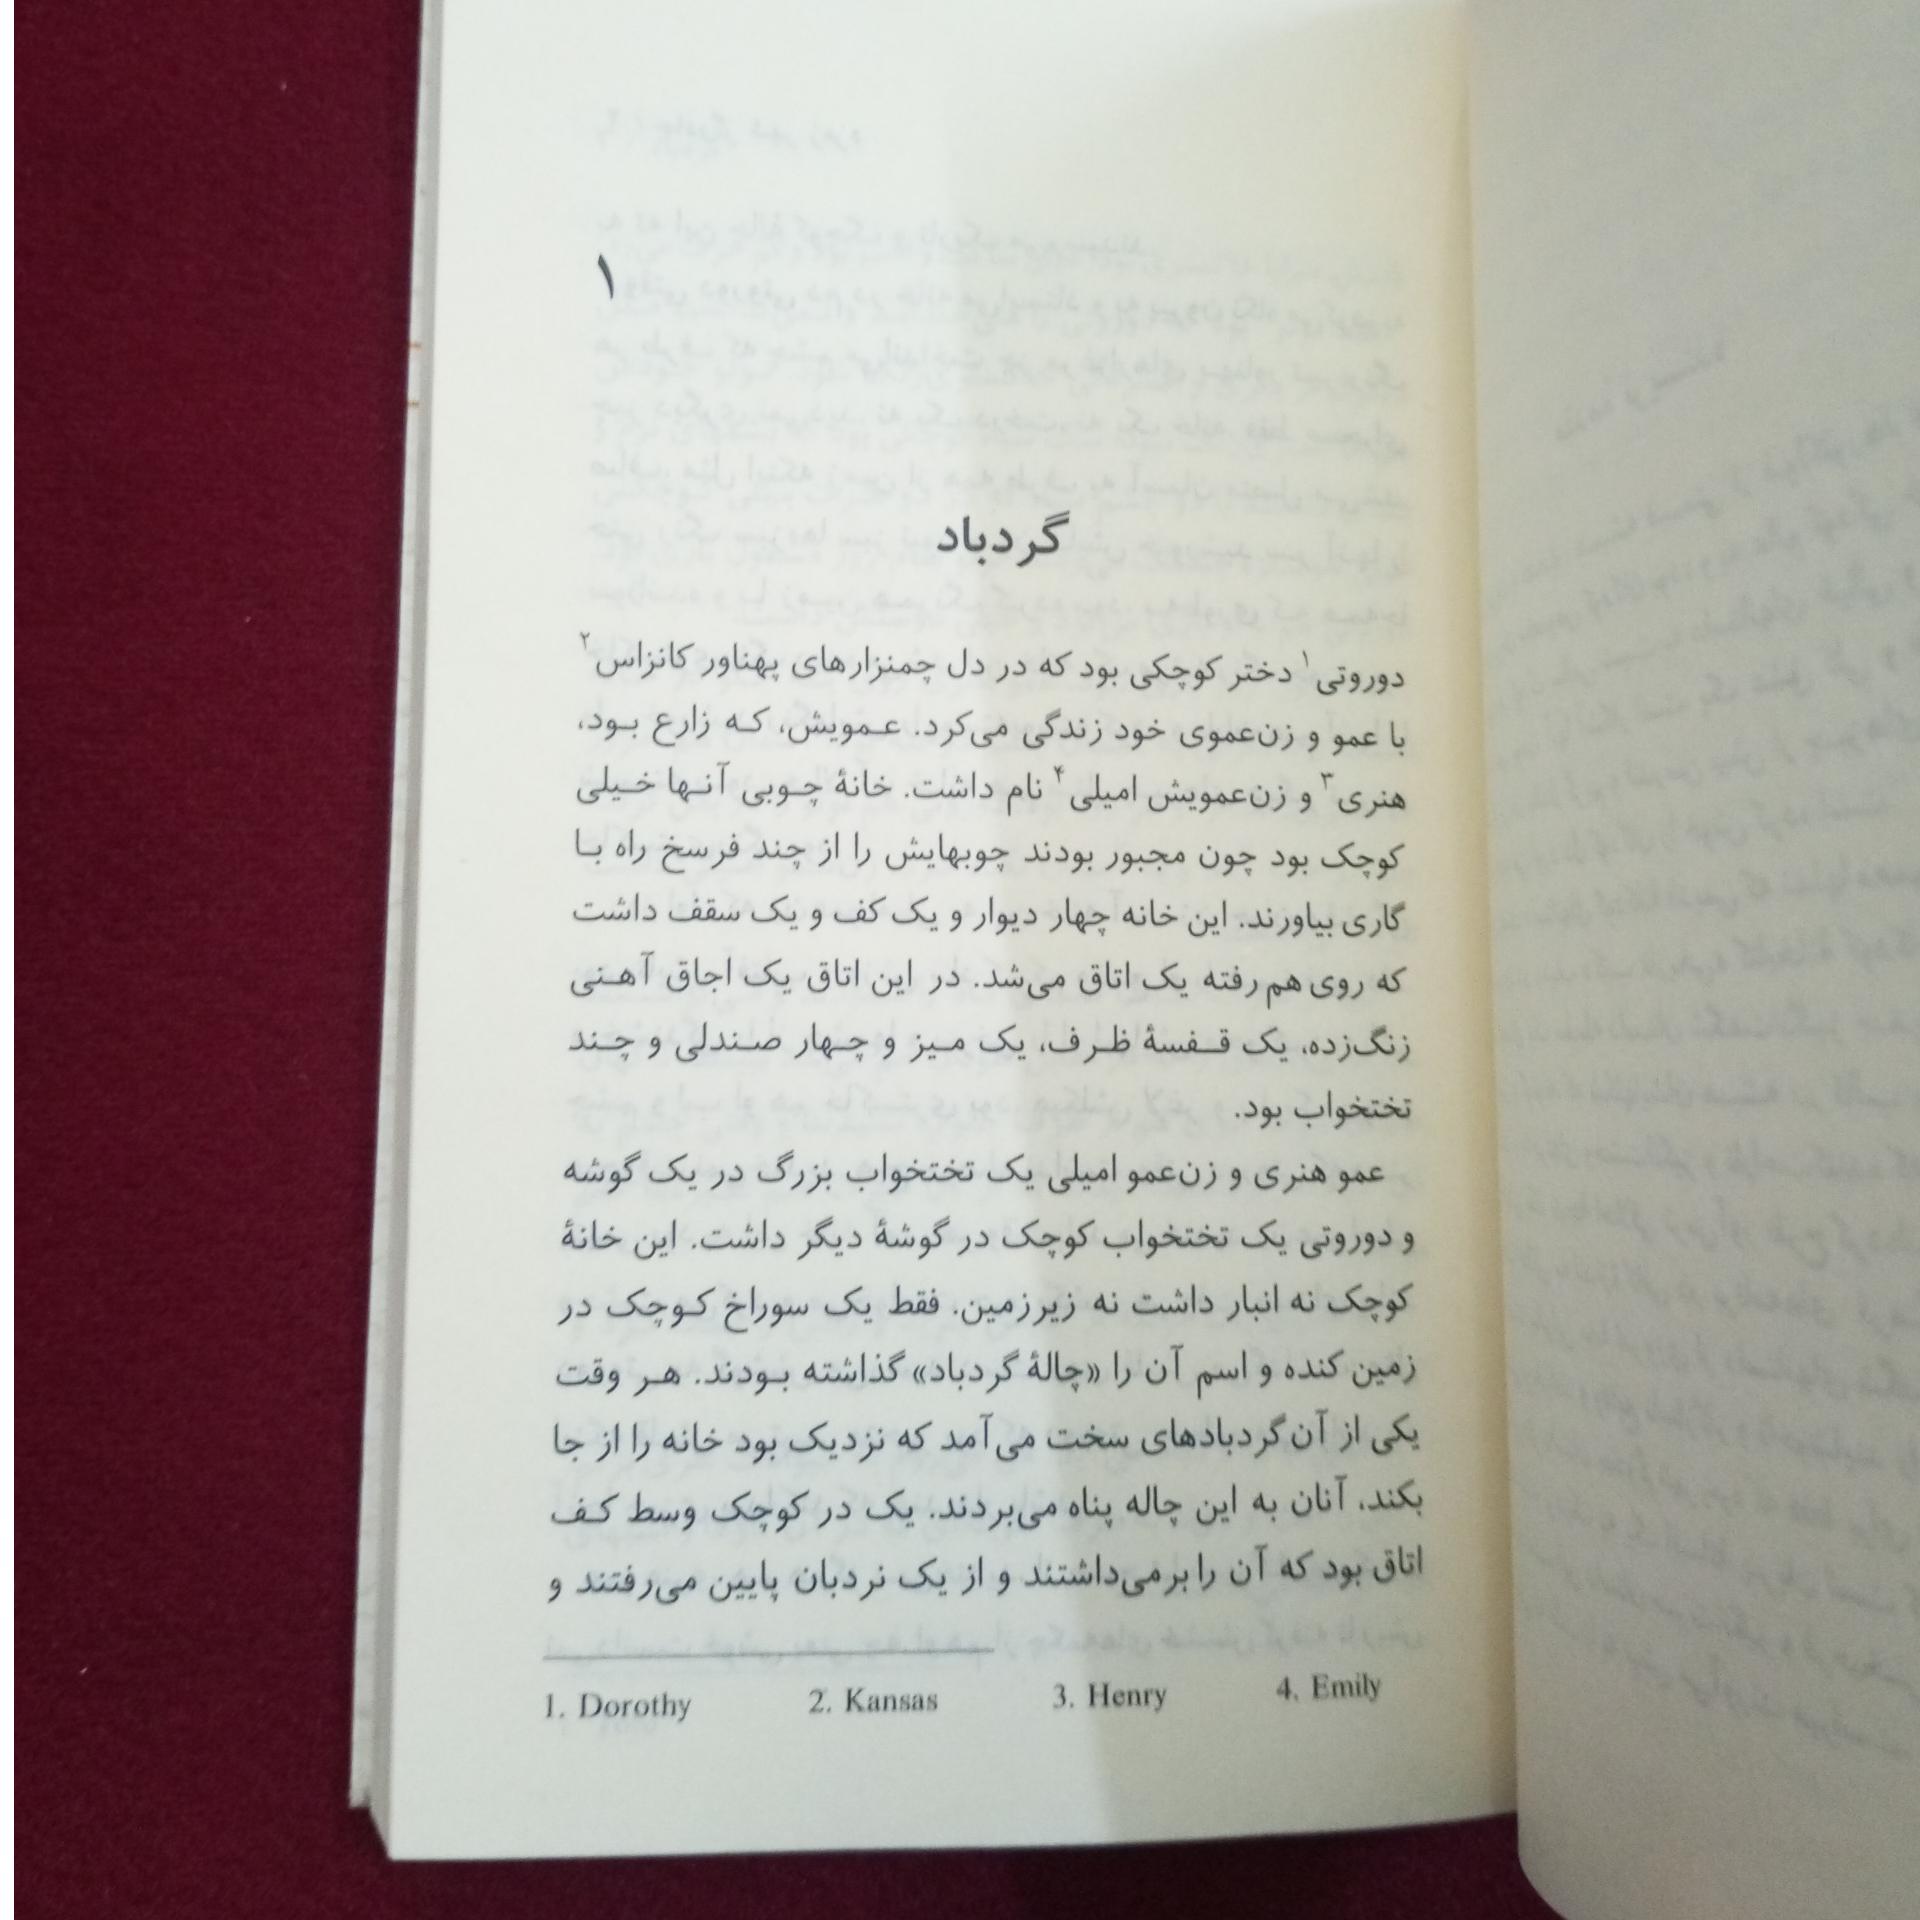 ۱
گردباد
دوروتی۱ دختر کوچکی بود که در دل چمنزارهای پهناور کانزاس۲
با عمو و زن‌عموی خود زندگی می‌کرد. عمویش، که زارع بود،
هنری۳ و زن‌عمویش امیلی۴ نام داشت. خانهٔ چوبی آنها خیلی
کوچک بود چون مجبور بودند چوبهایش را از چند فرسخ راه با
گاری بیاورند. این خانه چهار دیوار و یک کف و یک سقف داشت
که روی هم رفته یک اتاق می‌شد. در این اتاق یک اجاق آهنی
زنگ‌زده، یک قفسهٔ ظرف، یک میز و چهار صندلی و چند
تختخواب بود.
عمو هنری و زن‌عمو امیلی یک تختخواب بزرگ در یک گوشه
و دوروتی یک تختخواب کوچک در گوشهٔ دیگر داشت. این خانهٔ
کوچک نه انبار داشت نه زیرزمین. فقط یک سوراخ کوچک در
زمین کنده و اسم آن را «چالهٔ گردباد» گذاشته بودند. هر وقت
یکی از آن گردبادهای سخت می‌آمد که نزدیک بود خانه را از جا
بکند، آنان به این چاله پناه می‌بردند. یک در کوچک وسط کف
اتاق بود که آن را برمی‌داشتند و از یک نردبان پایین می‌رفتند و
1. Dorothy 2. Kansas 3. Henry 4. Emily